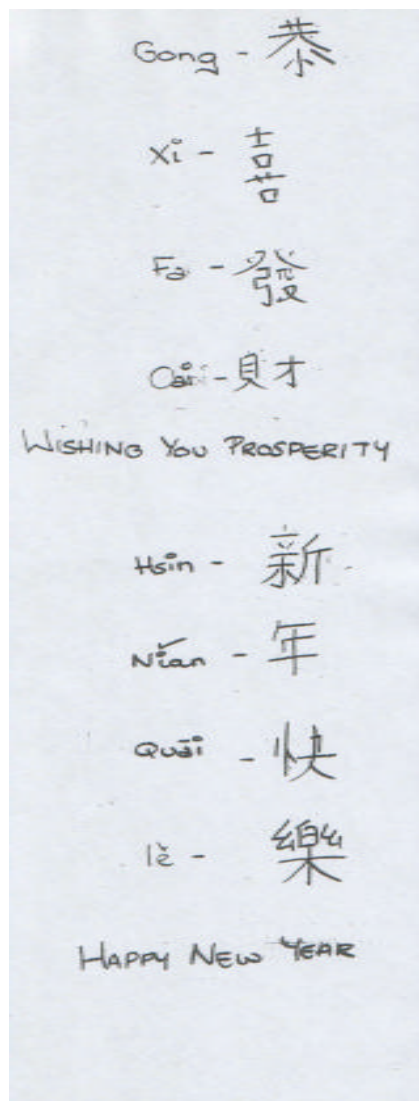 Gong - 恭
Xi - 喜
Fa - 發
Cai - 財
WISHING YOU PROSPERITY
Hsin - 新
Nían - 年
Quāi - 快
lè - 樂
HAPPY NEW YEAR